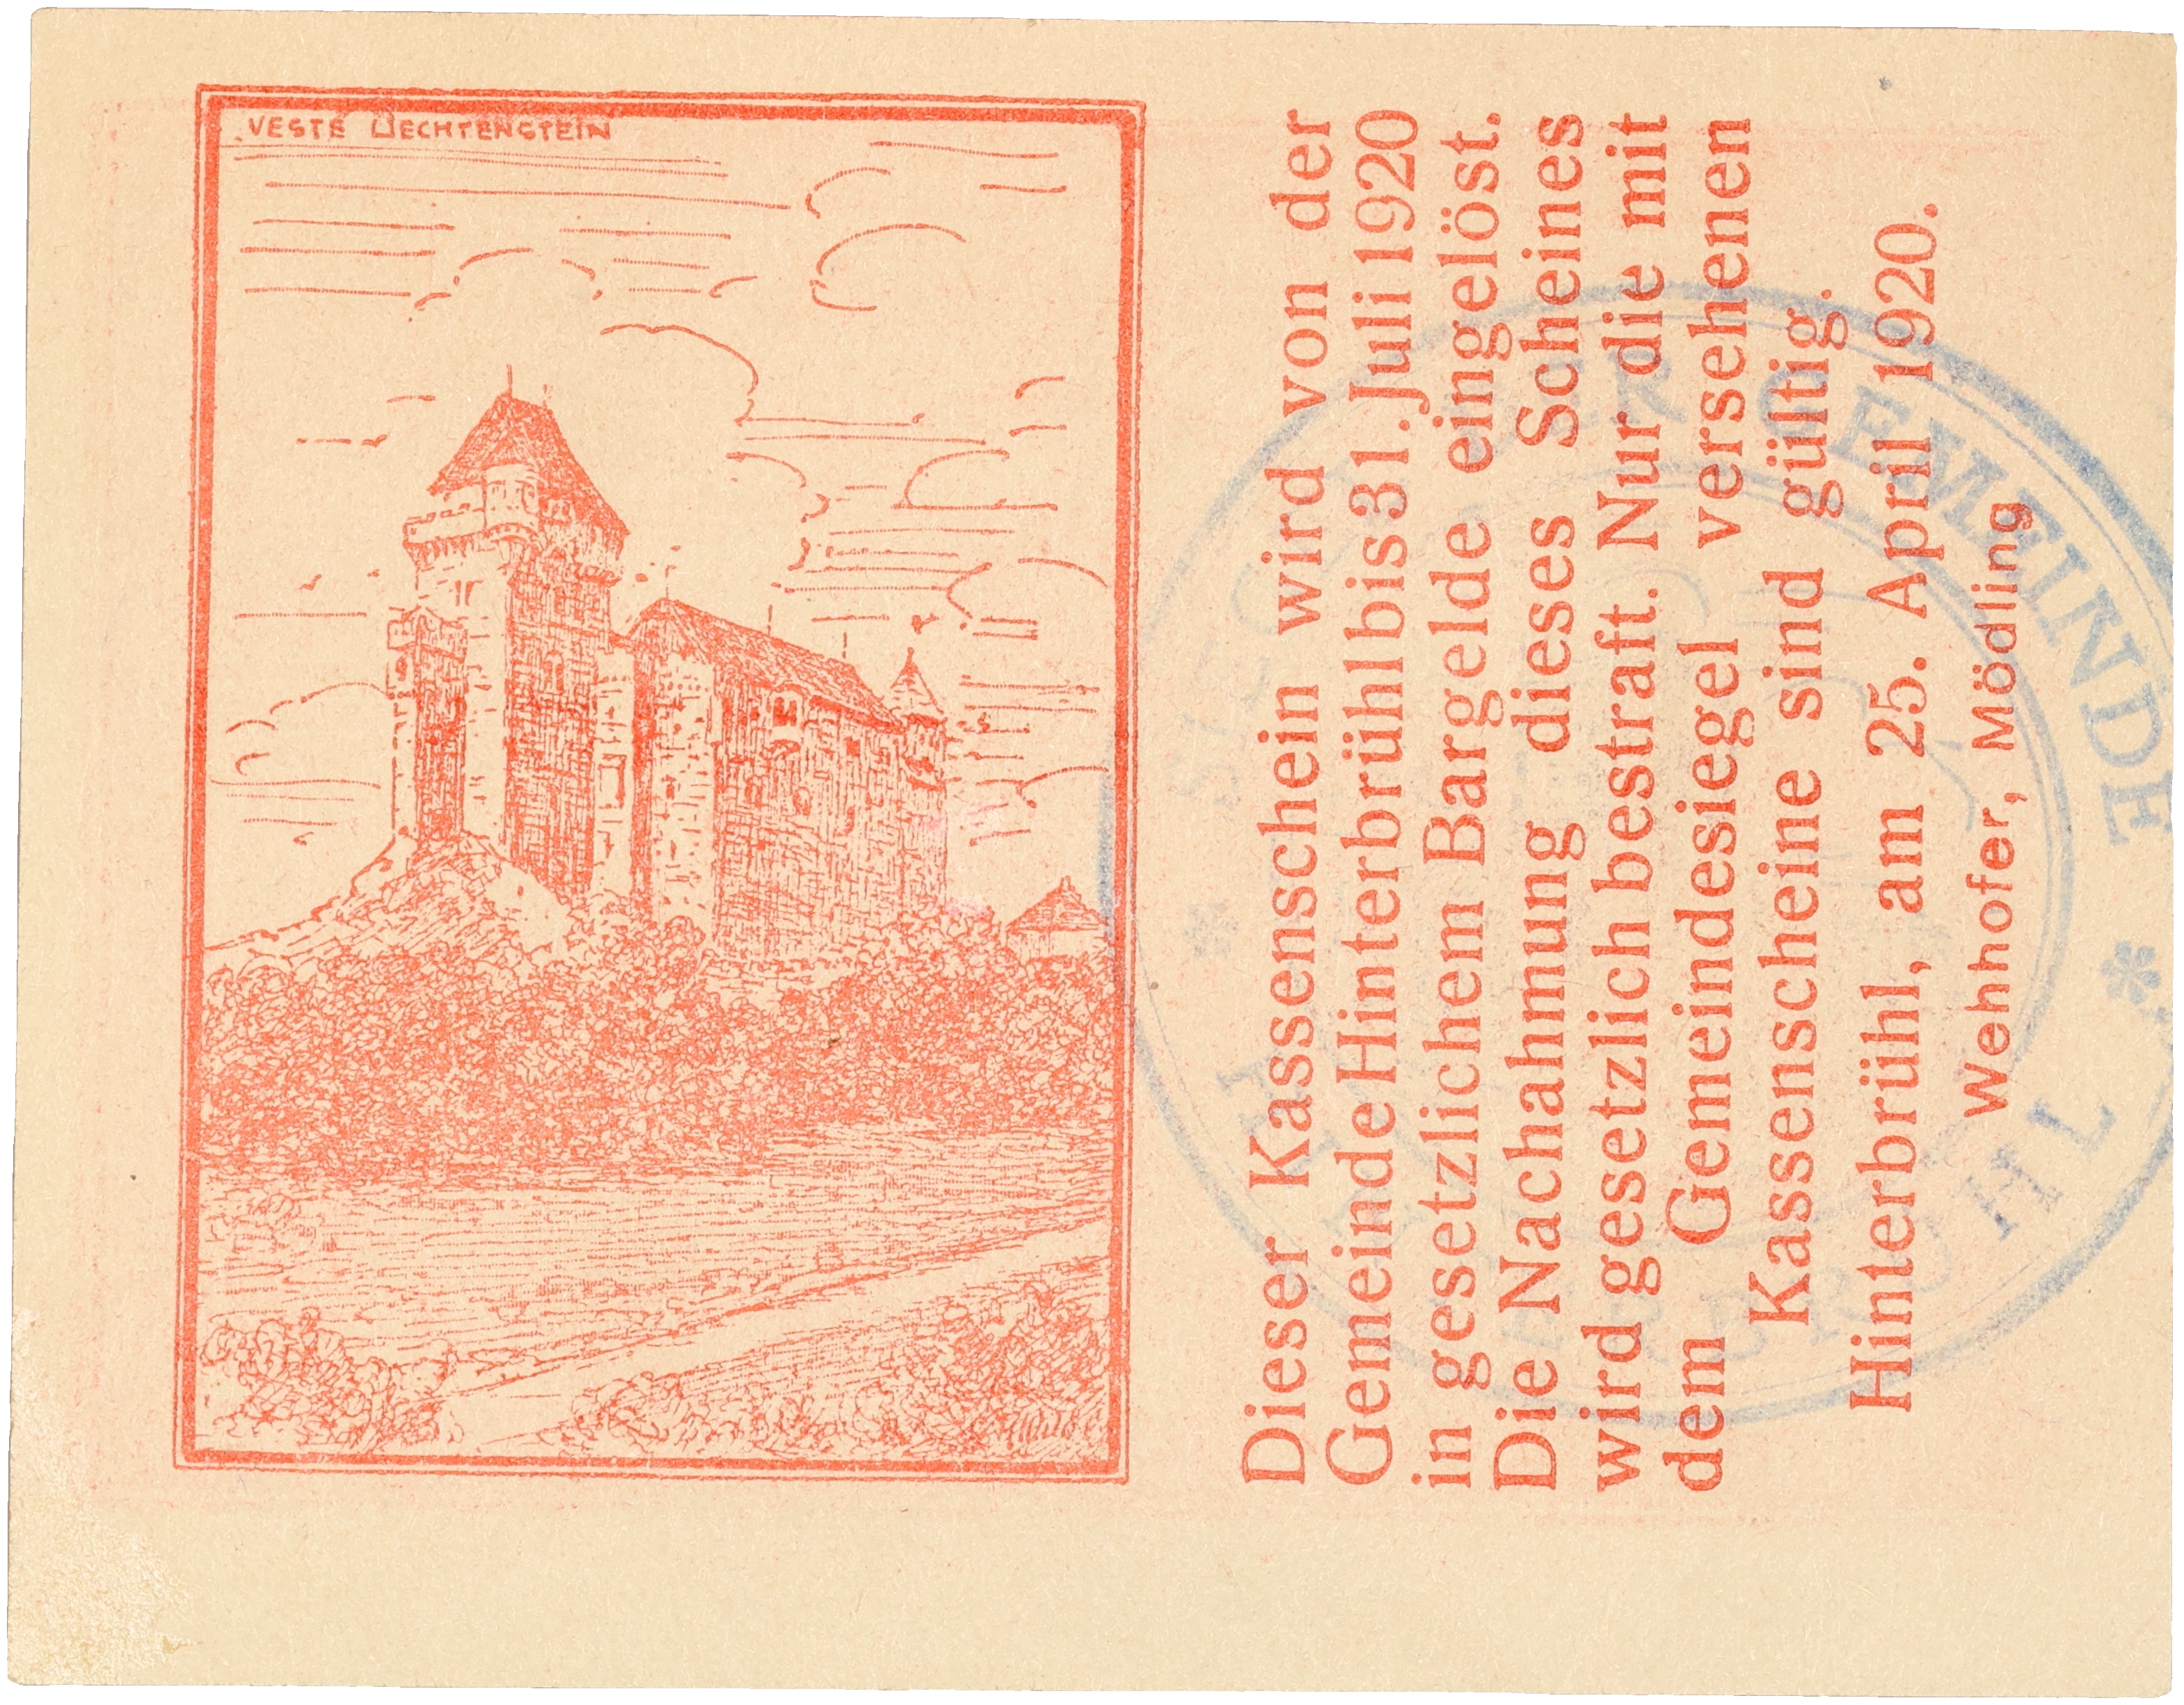 VESTE LIECHTENSTEIN
Dieser Kassenschein wird von der
Gemeinde Hinterbrühl bis 31. Juli 1920
in gesetzlichem Bargelde eingelöst.
Die Nachahmung dieses Scheines
wird gesetzlich bestraft. Nur die mit
dem Gemeindesiegel versehenen
Kassenscheine sind gültig.
Hinterbrühl, am 25. April 1920.
Wehhofer, Mödling
GEMEINDE *